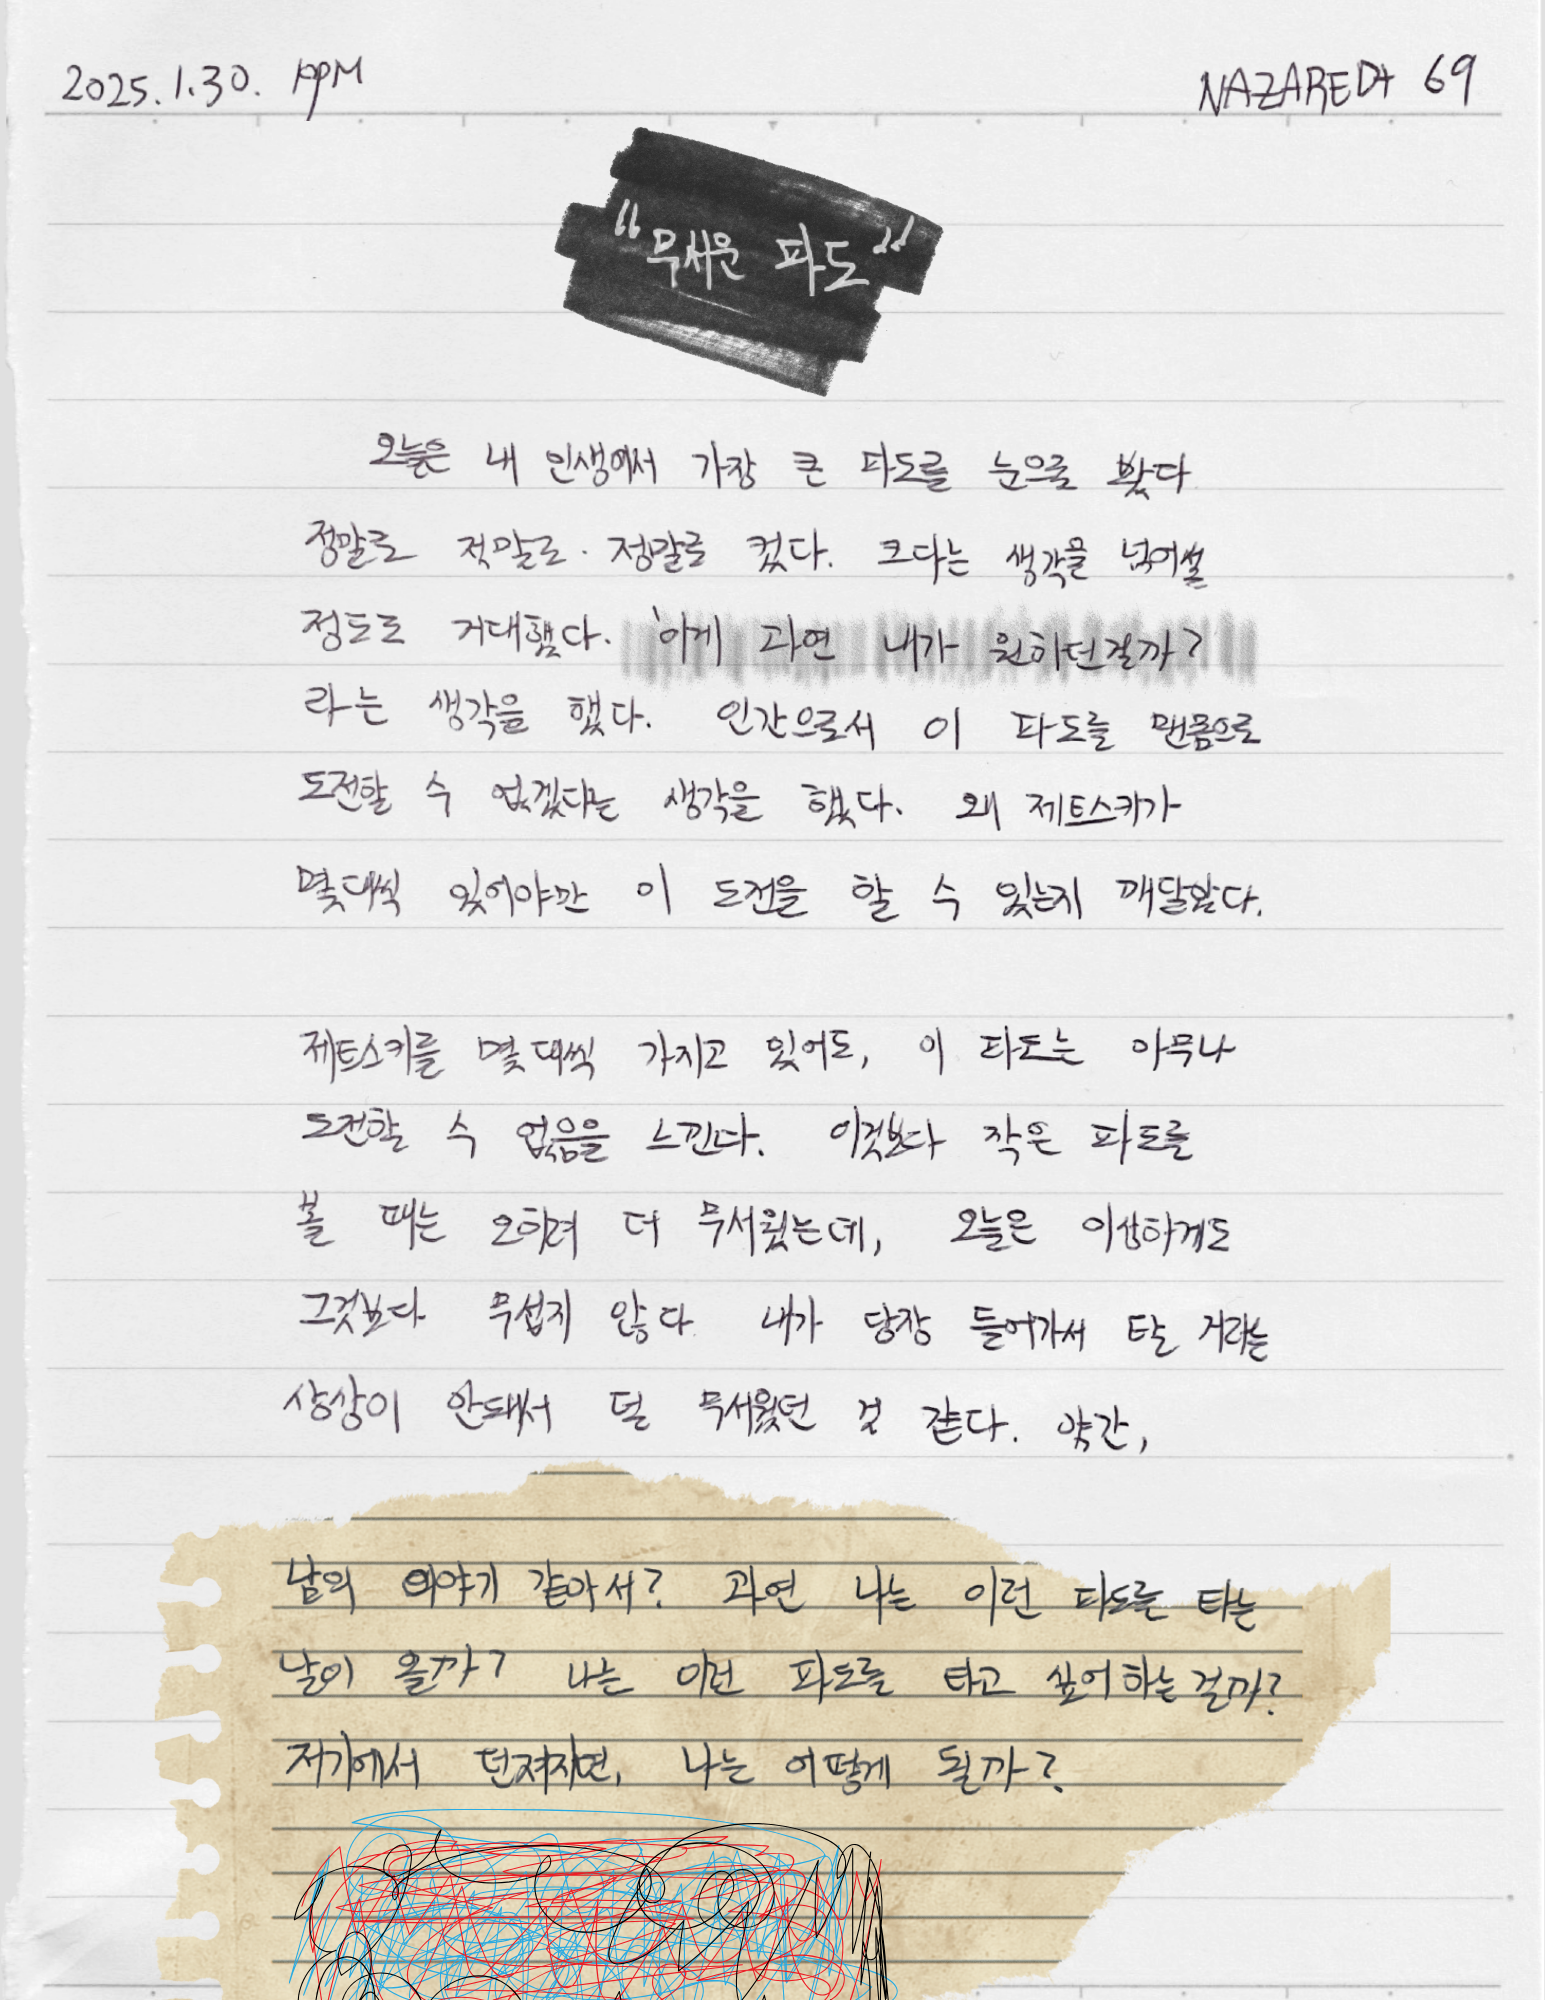 2025.1.30. 1PPM
NAZARE D+ 69
"무서운 파도"
오늘은 내 인생에서 가장 큰 파도를 눈으로 봤다
정말로 정말로. 정말로 컸다. 크다는 생각을 넘어설
정도로 거대했다. '이게 과연 내가 원하던걸까?
라는 생각을 했다. 인간으로서 이 파도를 맨몸으로
도전할 수 없겠다는 생각을 했다. 왜 제트스키가
몇대씩 있어야만 이 도전을 할 수 있는지 깨달았다.
제트스키를 몇 대씩 가지고 있어도, 이 파도는 아무나
도전할 수 없음을 느낀다. 이것보다 작은 파도를
볼 때는 오히려 더 무서웠는데, 오늘은 이상하게도
그것보다 무섭지 않다 내가 당장 들어가서 탈 거라는
상상이 안돼서 덜 무서웠던 것 같다. 약간,
남의 이야기 같아서? 과연 나는 이런 파도를 타는
날이 올까? 나는 이런 파도를 타고 싶어하는걸까?
저기에서 던져지면, 나는 어떻게 될까?